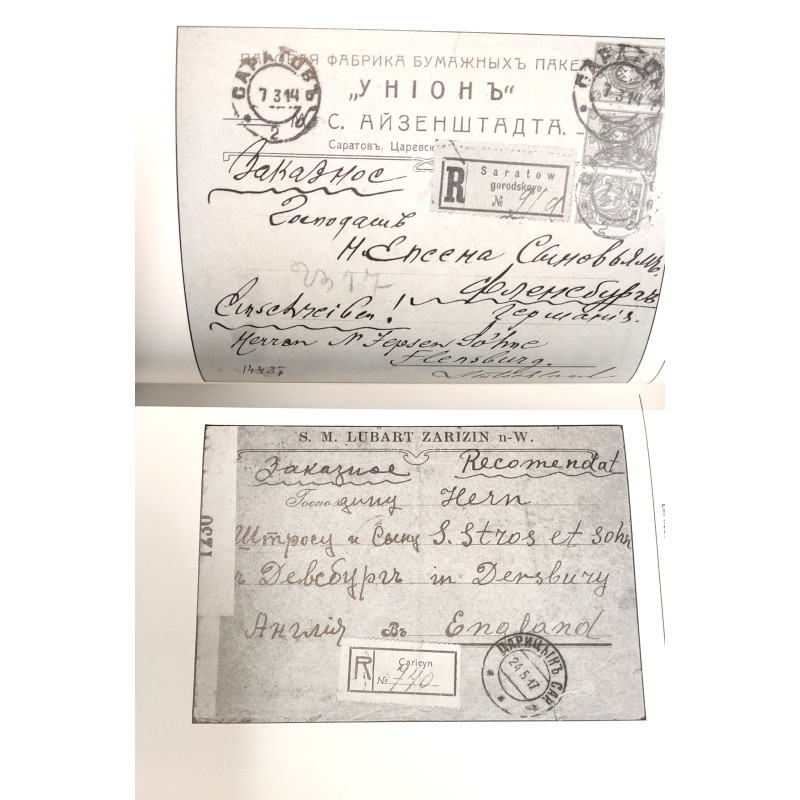 ПАРОВАЯ ФАБРИКА БУМАЖНЫХЪ ПАКЕ
„УНІОНЪ“
С. АЙЗЕНШТАДТА.
Саратовъ, Царевск
САРАТОВЪ
7 3 14
2
САРАТО
7 3 14
Заказное
R
Saratow
gorodskoye
№
Господамъ
Н. Епсена Сыновьямъ
Фленсбургъ
Германія.
Einschreiben!
Herren N Jepsen Söhne
Flensburg.
Deutschland
14437
S. M. LUBART ZARIZIN n-W.
Заказное Recomendat
Господину Hern
Штросу и Сыну S. Stros et Sohn
Девсбургъ in Dersbury
Англія Въ England
1230
R
Caricyn
№ 740
ЦАРИЦЫНЪ САР.
24 5 17